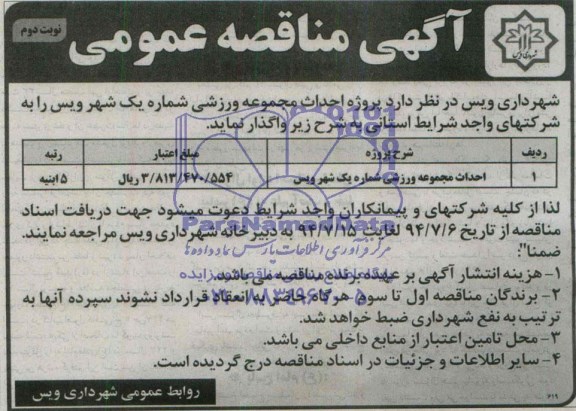 آگهی مناقصه عمومی
نوبت دوم
شهرداری ویس
شهرداری ویس در نظر دارد پروژه احداث مجموعه ورزشی شماره یک شهر ویس را به
شرکتهای واجد شرایط استانی به شرح زیر واگذار نماید.
ردیف شرح پروژه مبلغ اعتبار رتبه
۱ احداث مجموعه ورزشی شماره یک شهر ویس ۳/۸۱۳/۴۷۰/۵۵۴ ریال ۵ ابنیه
لذا از کلیه شرکتهای و پیمانکاران واجد شرایط دعوت میشود جهت دریافت اسناد
مناقصه از تاریخ ۹۴/۷/۶ لغایت ۹۴/۷/۱۵ به دبیرخانه شهرداری ویس مراجعه نمایند.
ضمنا":
۱- هزینه انتشار آگهی بر عهده برنده مناقصه می باشد.
۲- برندگان مناقصه اول تا سوم هرگاه حاضر به انعقاد قرارداد نشوند سپرده آنها به
ترتیب به نفع شهرداری ضبط خواهد شد.
۳- محل تامین اعتبار از منابع داخلی می باشد.
۴- سایر اطلاعات و جزئیات در اسناد مناقصه درج گردیده است.
روابط عمومی شهرداری ویس
۶۱۹
ParsNamadData
مرکز فرآوری اطلاعات پارس نماد داده ها